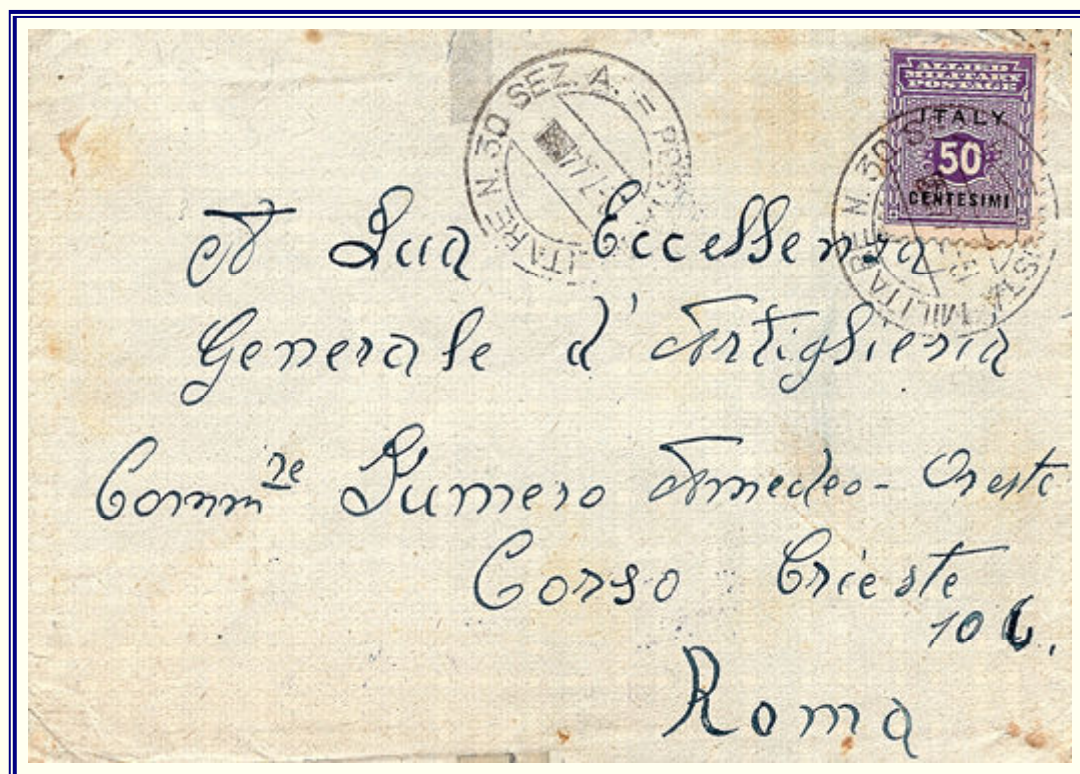 ALLIED
MILITARY
POSTAGE
ITALY
50
CENTESIMI
N. 30 SEZ. A. =
MILITARE N. 30
A Sua Eccellenza
Generale d'Artiglieria
Comm.re Amedeo - Oreste
Corso Trieste
10
Roma